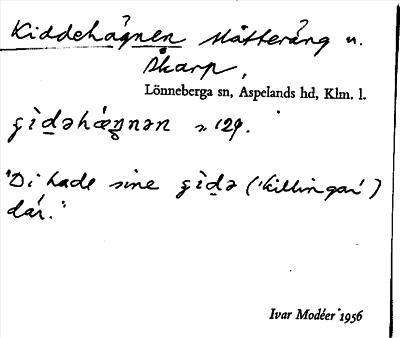 Kiddehågnen slåtteräng n.
Skarp,
Lönneberga sn, Aspelands hd, Klm. l.
129.
"Di hade sine ('killingar')
där."
Ivar Modéer 1956